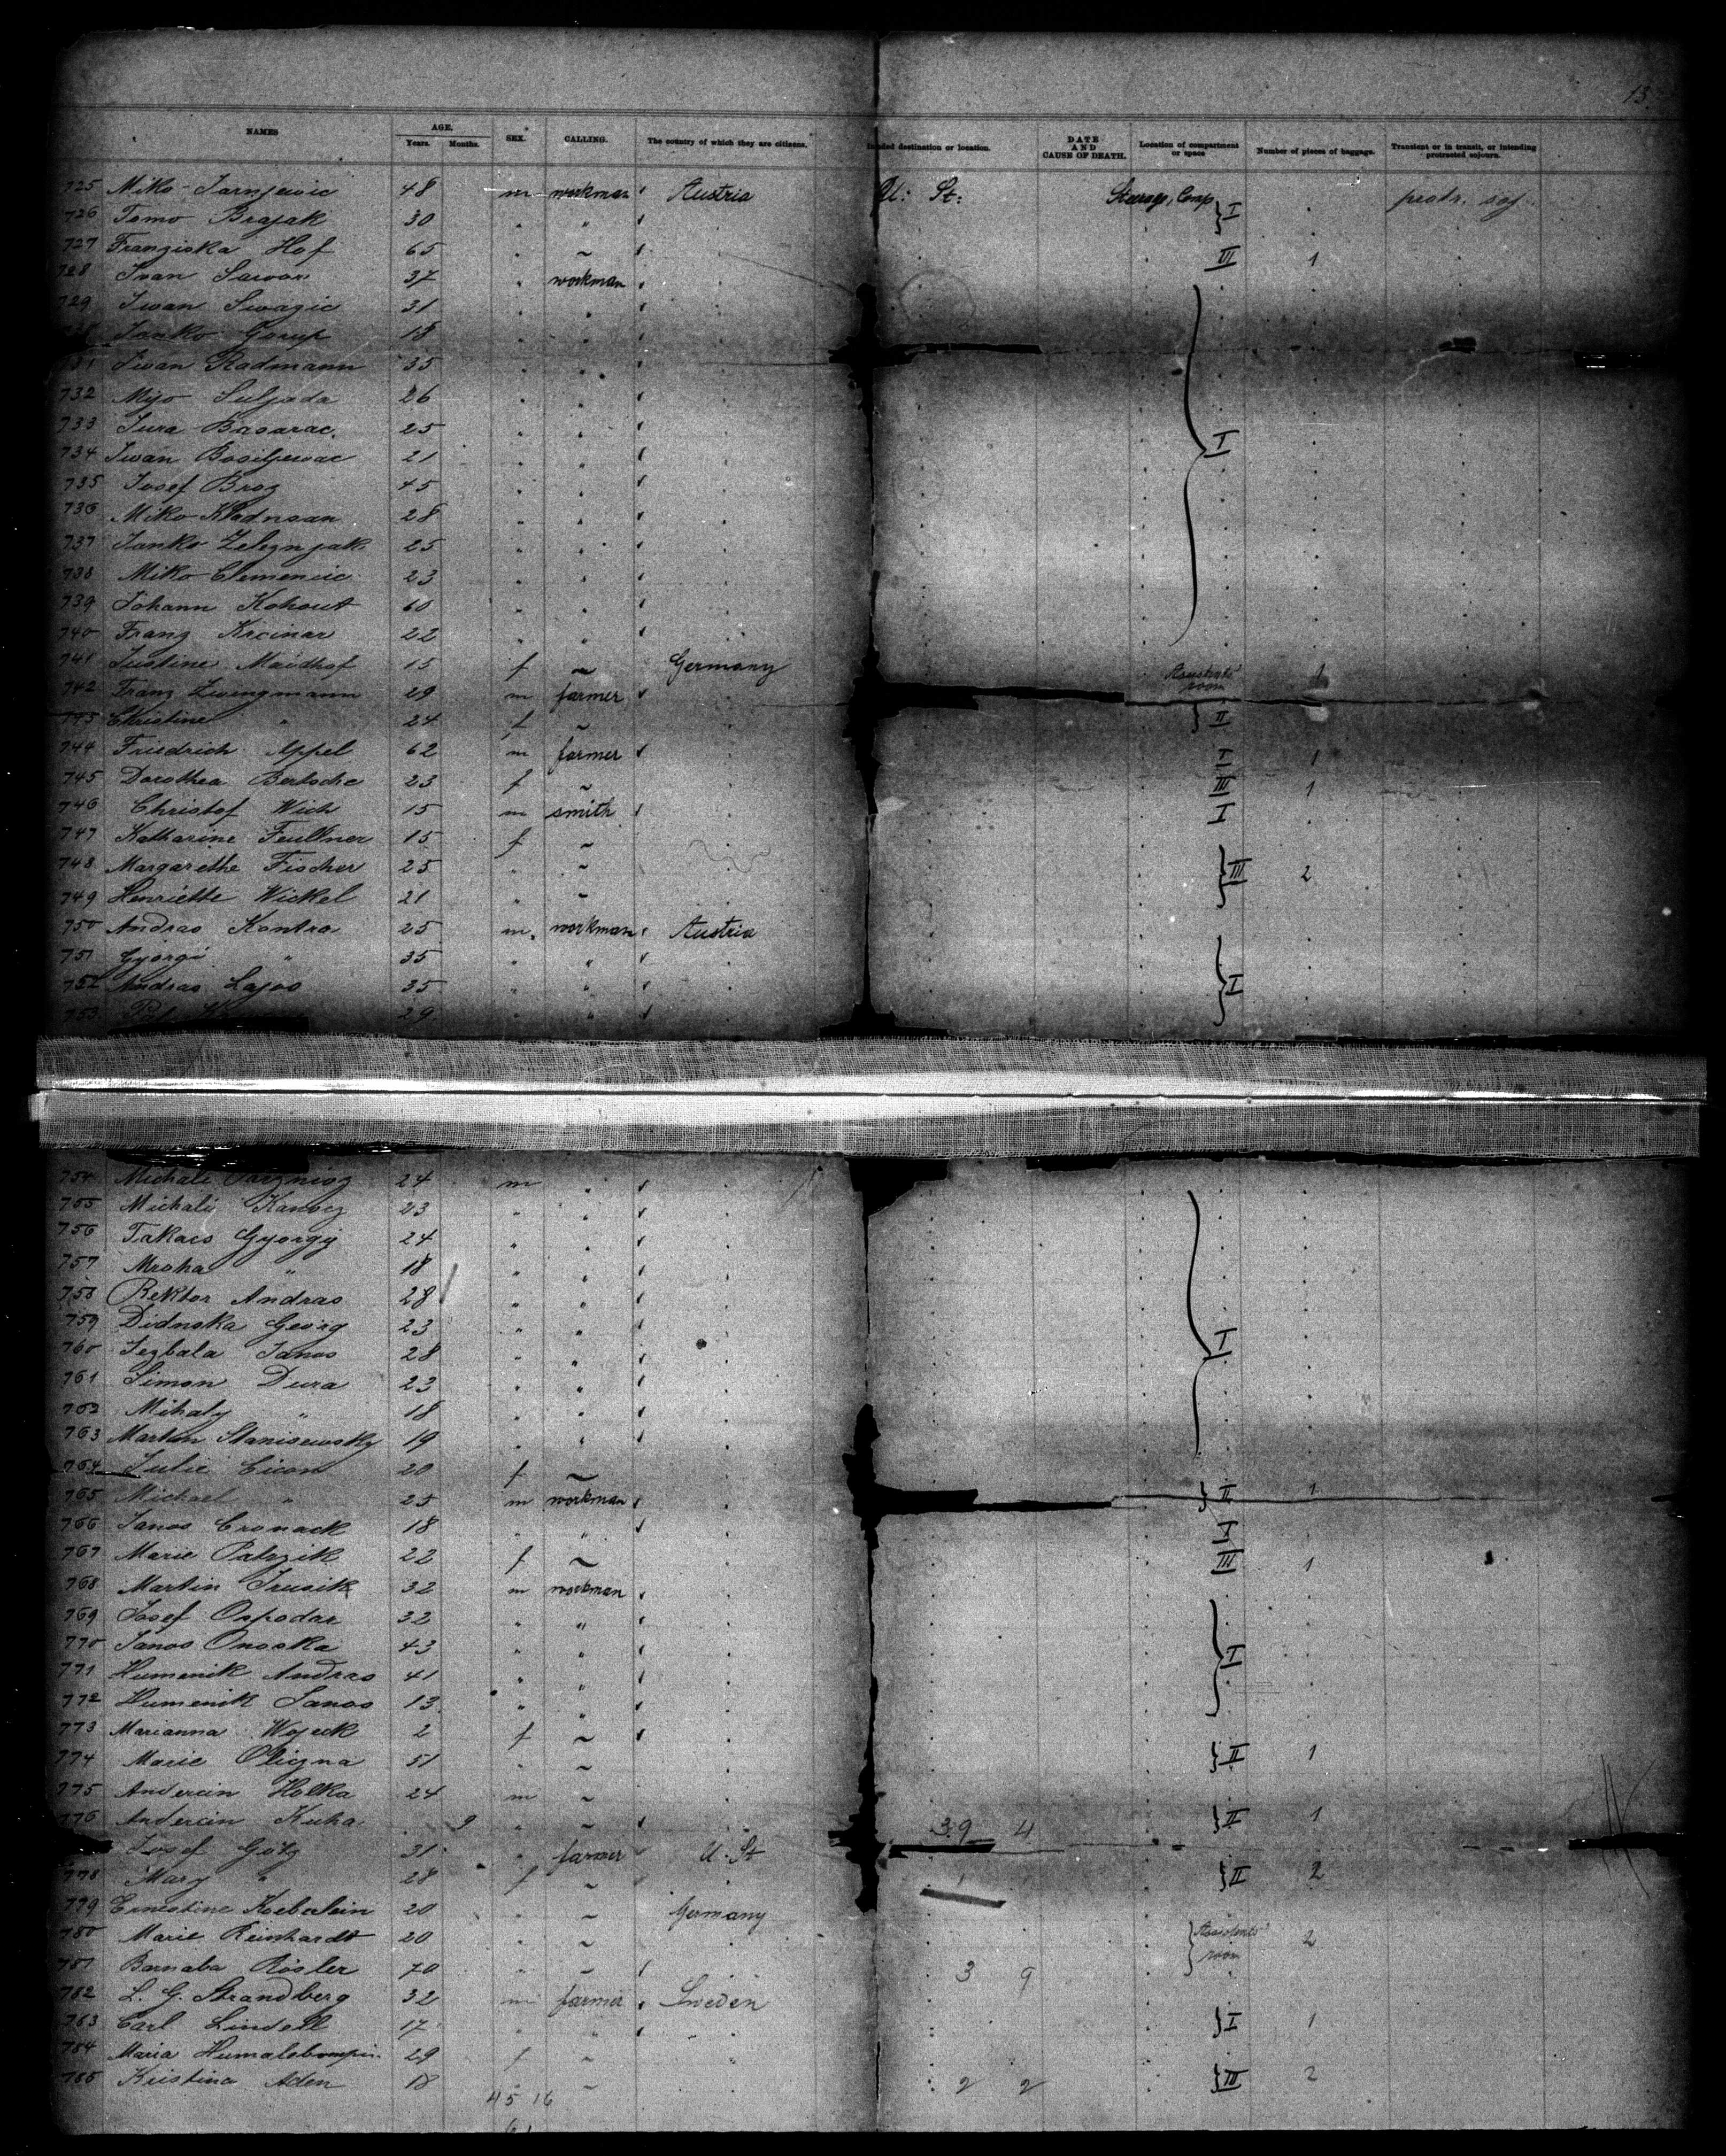 13
NAMES AGE. Years. Months. SEX. CALLING. The country of which they are citizens. nded destination or location. DATE AND CAUSE OF DEATH. Location of compartment or space Number of pieces of baggage. Transient or in transit, or intending protracted sojourn.
725 Miko Jarnjevic 48 m workman Austria U: St: Steerage, Comp. protr. soj.
726 Tomo Brajak 30 " " I
727 Franziska Hof 65 " ~ III 1
728 Ivan 37 " workman
729 Iwan 31 " "
Janko 18 " "
731 Iwan Radmann 35 " "
732 Mijo Suljada 26 " "
733 Jura Basarac 25 " "
734 Iwan Bosiljevac 21 " " I
735 Josef Broz 45 " "
736 Miko 28 " "
737 Janko Zeleznjak 25 " "
738 Miko Clemencic 23 " "
739 Johann Kohout 60 " "
740 Franz Krcinar 22 " "
741 Justine Maidhof 15 f ~ Germany room 1
742 Franz Zwingmann 29 m farmer
743 Christine " 24 f ~ II
744 Friedrich Appel 62 m farmer I 1
745 Dorothea Bertsche 23 f ~ III 1
746 Christof Wich 15 m smith I
747 Katharine Feulkner 15 f ~
748 Margarethe Fischer 25 " ~ III 2
749 Henriette Wickel 21 " ~
750 Andras Kontra 25 m workman Austria
751 Györgi " 35 " "
752 Andras Lajos 35 " " I
753 29 " "
754 Michali 24 m "
755 Michali 23 " "
756 Takacs György 24 " "
757 Mroha " 18 " "
758 Rektor Andras 28 " "
759 Didnska Georg 23 " "
760 Janos 28 " " I
761 Simon Dura 23 " "
762 Mihaly " 18 " "
763 Martin Stanisewsky 19 " "
764 Julie Cicon 20 f ~
765 Michael " 25 m workman II 1
766 Janos Cronack 18 " " I
767 Marie Patrzik 22 f ~ III 1
768 Martin 32 m workman
769 Josef Ospodar 32 " "
770 Janos Onoska 43 " "
771 Humenik Andras 41 " " I
772 Humenik Janos 13 " "
773 Marianna 2 f ~
774 Marie 51 " ~ II 1
775 Andercin Holka 24 m ~
776 Andercin Kuha 9 " ~ 39 4 II 1
Josef Götz 31 " farmer U. St
778 Mary " 28 f ~ 1 II 2
779 Ernestine Koeberlein 20 " ~ Germany
780 Marie Reinhardt 20 " ~ room 2
781 Barnaba Rösler 70 " ~ 3 9
782 L. G. Strandberg 32 m farmer Sweden
783 Carl Lindell 17 " " " I 1
784 Maria 29 f ~ "
785 Kristina Aden 18 " ~ 2 2 III 2
45 16
61